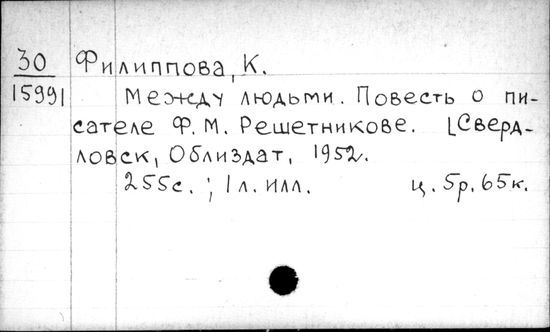 30
15991
Филиппова, К.
Между людьми. Повесть о пи-
сателе Ф. М. Решетникове. [Сверд-
ловск, Облиздат, 1952.
255с.; 1 л. илл. ц. 5р. 65к.